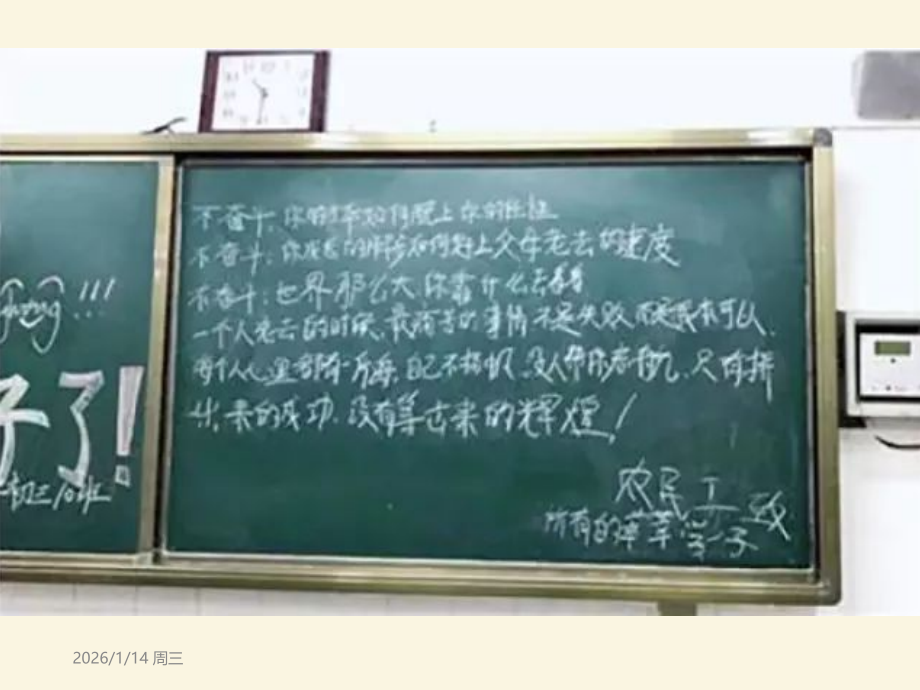 !!!
子了!
初三10班
不奋斗,你的才华如何配上你的任性
不奋斗:你成长的脚步如何赶上父母老去的速度
不奋斗:世界那么大你靠什么去看看
一个人老去的时候,最痛苦的事情不是失败 而是我本可以,
每个人心里都有一片海,自己不扬帆,没人帮你启航,只有拼
出来的成功,没有等出来的辉煌!
农民工 致
所有的莘莘学子
2026/1/14 周三